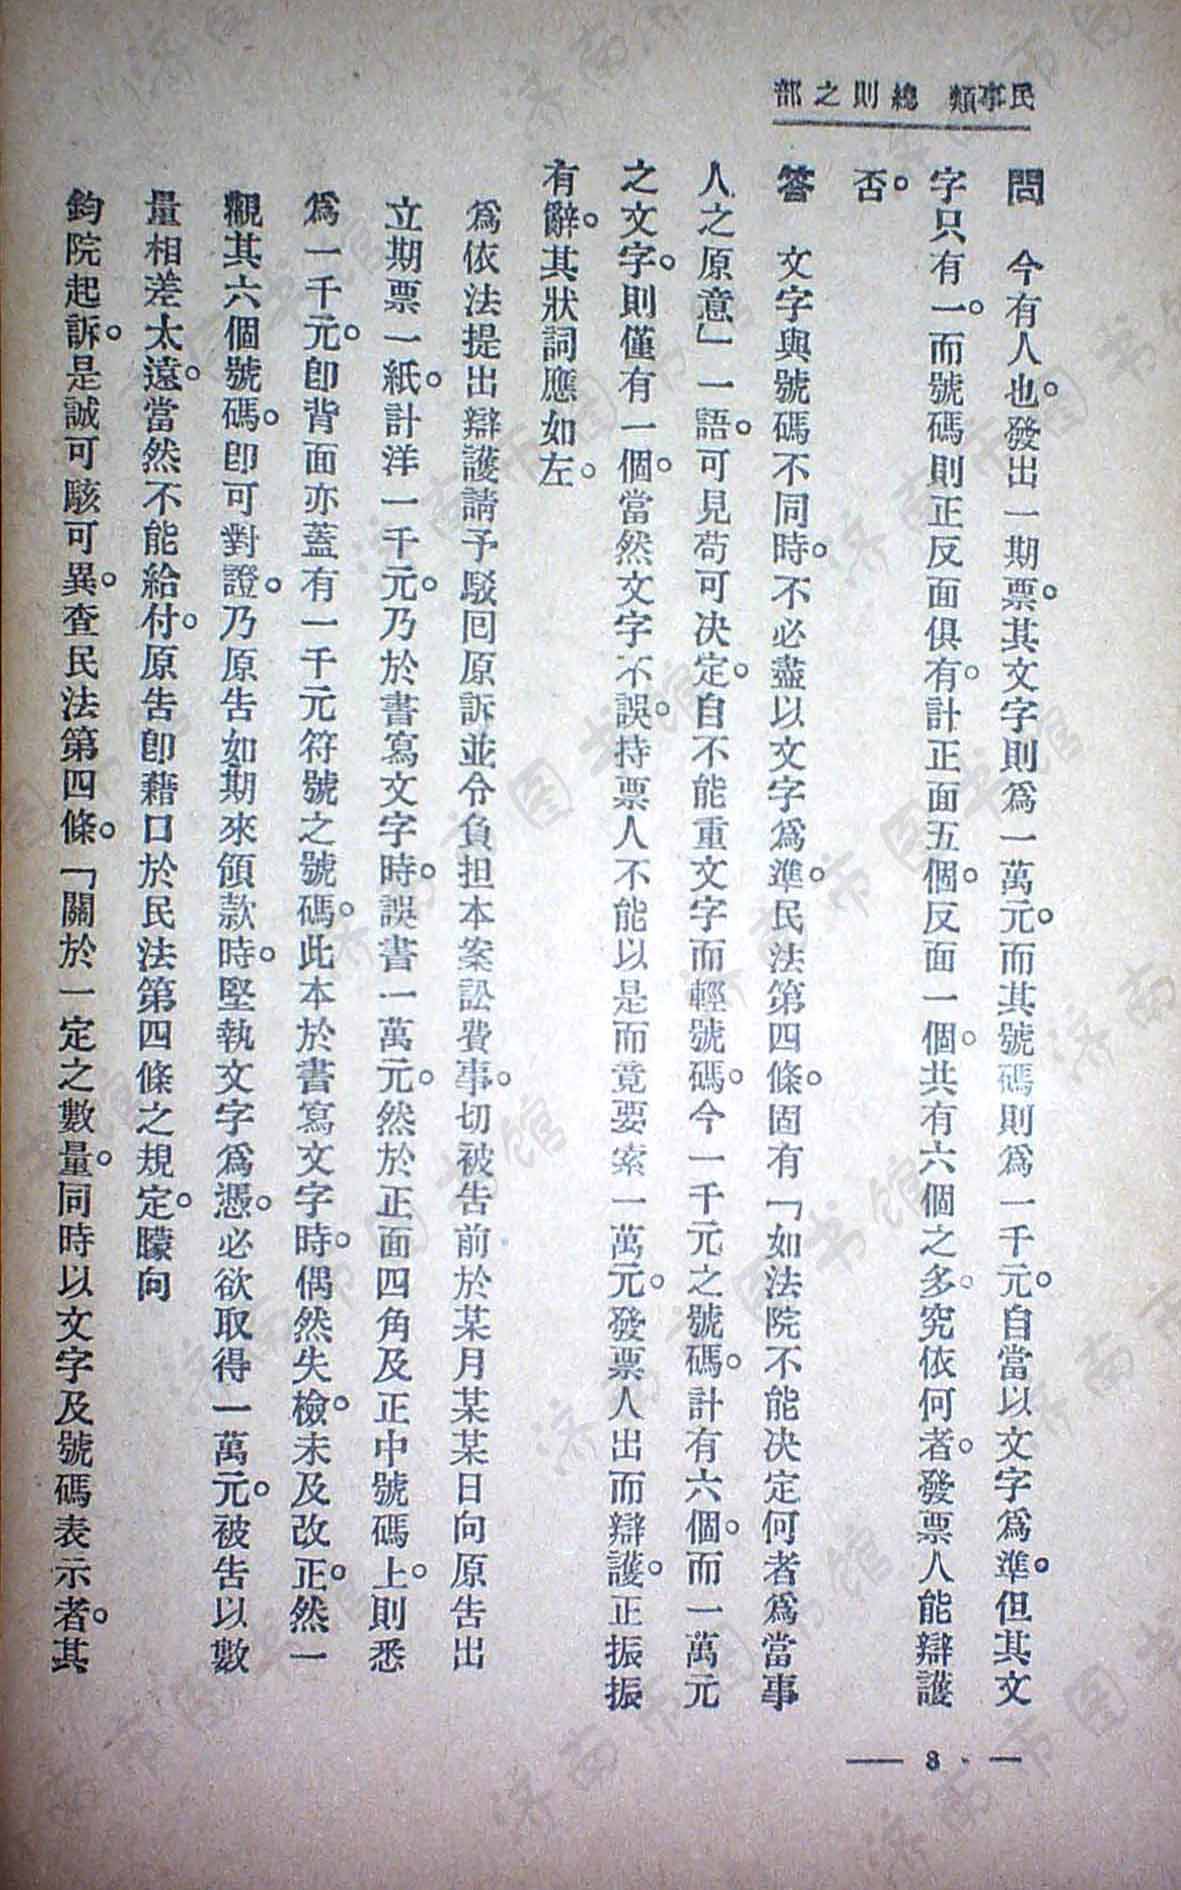 民事類 總則之部
問　今有人也。發出一期票。其文字則爲一萬元。而其號碼則爲一千元。自當以文字爲準。但其文
字只有一。而號碼則正反面俱有。計正面五個。反面一個。共有六個之多。究依何者。發票人能辯護
否。
答　文字與號碼不同時。不必盡以文字爲準。民法第四條。固有「如法院不能决定何者爲當事
人之原意」一語。可見苟可决定。自不能重文字而輕號碼。今一千元之號碼。計有六個。而一萬元
之文字。則僅有一個。當然文字不誤。持票人不能以是而竟要索一萬元。發票人出而辯護。正振振
有辭。其狀詞應如左。
爲依法提出辯護請予駁回原訴並令負担本案訟費事。切被告前於某月某某日向原告出
立期票一紙。計洋一千元。乃於書寫文字時。誤書一萬元。然於正面四角及正中號碼上。則悉
爲一千元。卽背面亦蓋有一千元符號之號碼。此本於書寫文字時。偶然失檢。未及改正。然一
觀其六個號碼。卽可對證。乃原告如期來領款時。堅執文字爲憑。必欲取得一萬元。被告以數
量相差太遠。當然不能給付。原告卽藉口於民法第四條之規定。矇向
鈞院起訴。是誠可駭可異。查民法第四條。「關於一定之數量。同時以文字及號碼表示者。其
— 3 · —
济南市图书馆